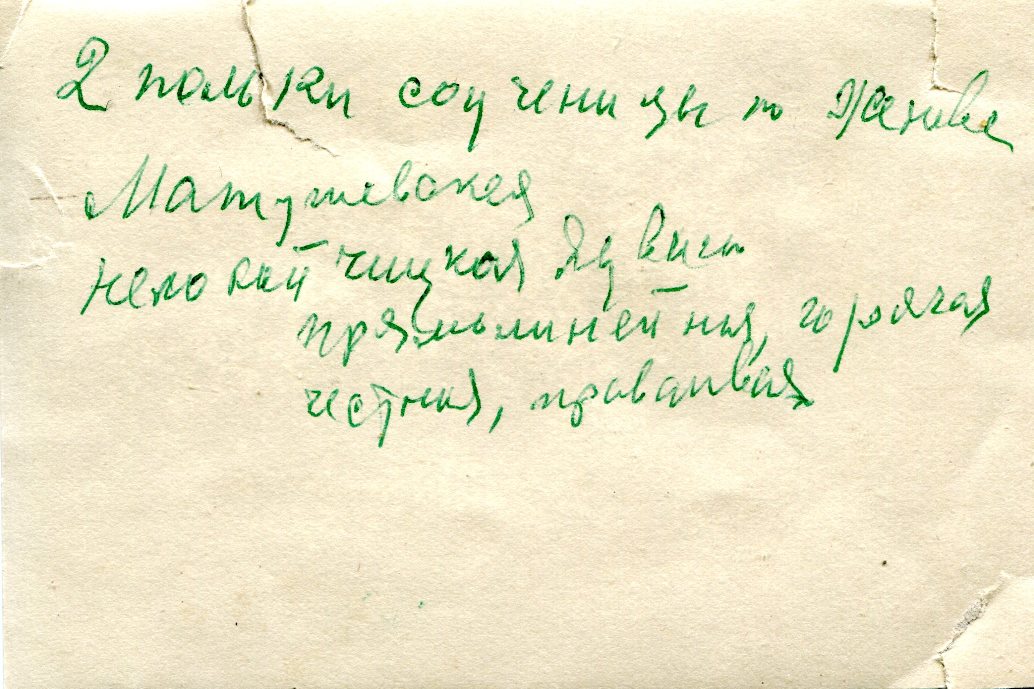 2 польки соученицы по Женеве
Матушевская
чицкая Ядвига
прямолинейная, горячая
честная, правдивая